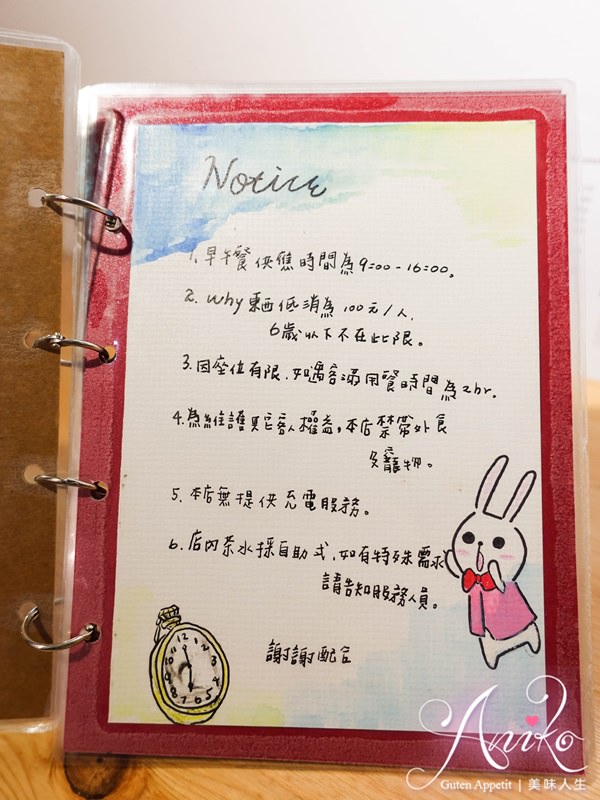 Notice
1. 早午餐供應時間為9:00-16:00。
2. why東西低消為100元/人.
6歲以下不在此限。
3. 因座位有限.如遇客滿用餐時間為2hr.
4. 為維護其它客人權益,本店禁帶外食
及寵物。
5. 本店無提供充電服務。
6. 店內茶水採自助式,如有特殊需求
請告知服務人員。
謝謝配合
12 1 2 3 4 5 6 7 8 9 10 11
Aniko
Guten Appetit | 美味人生